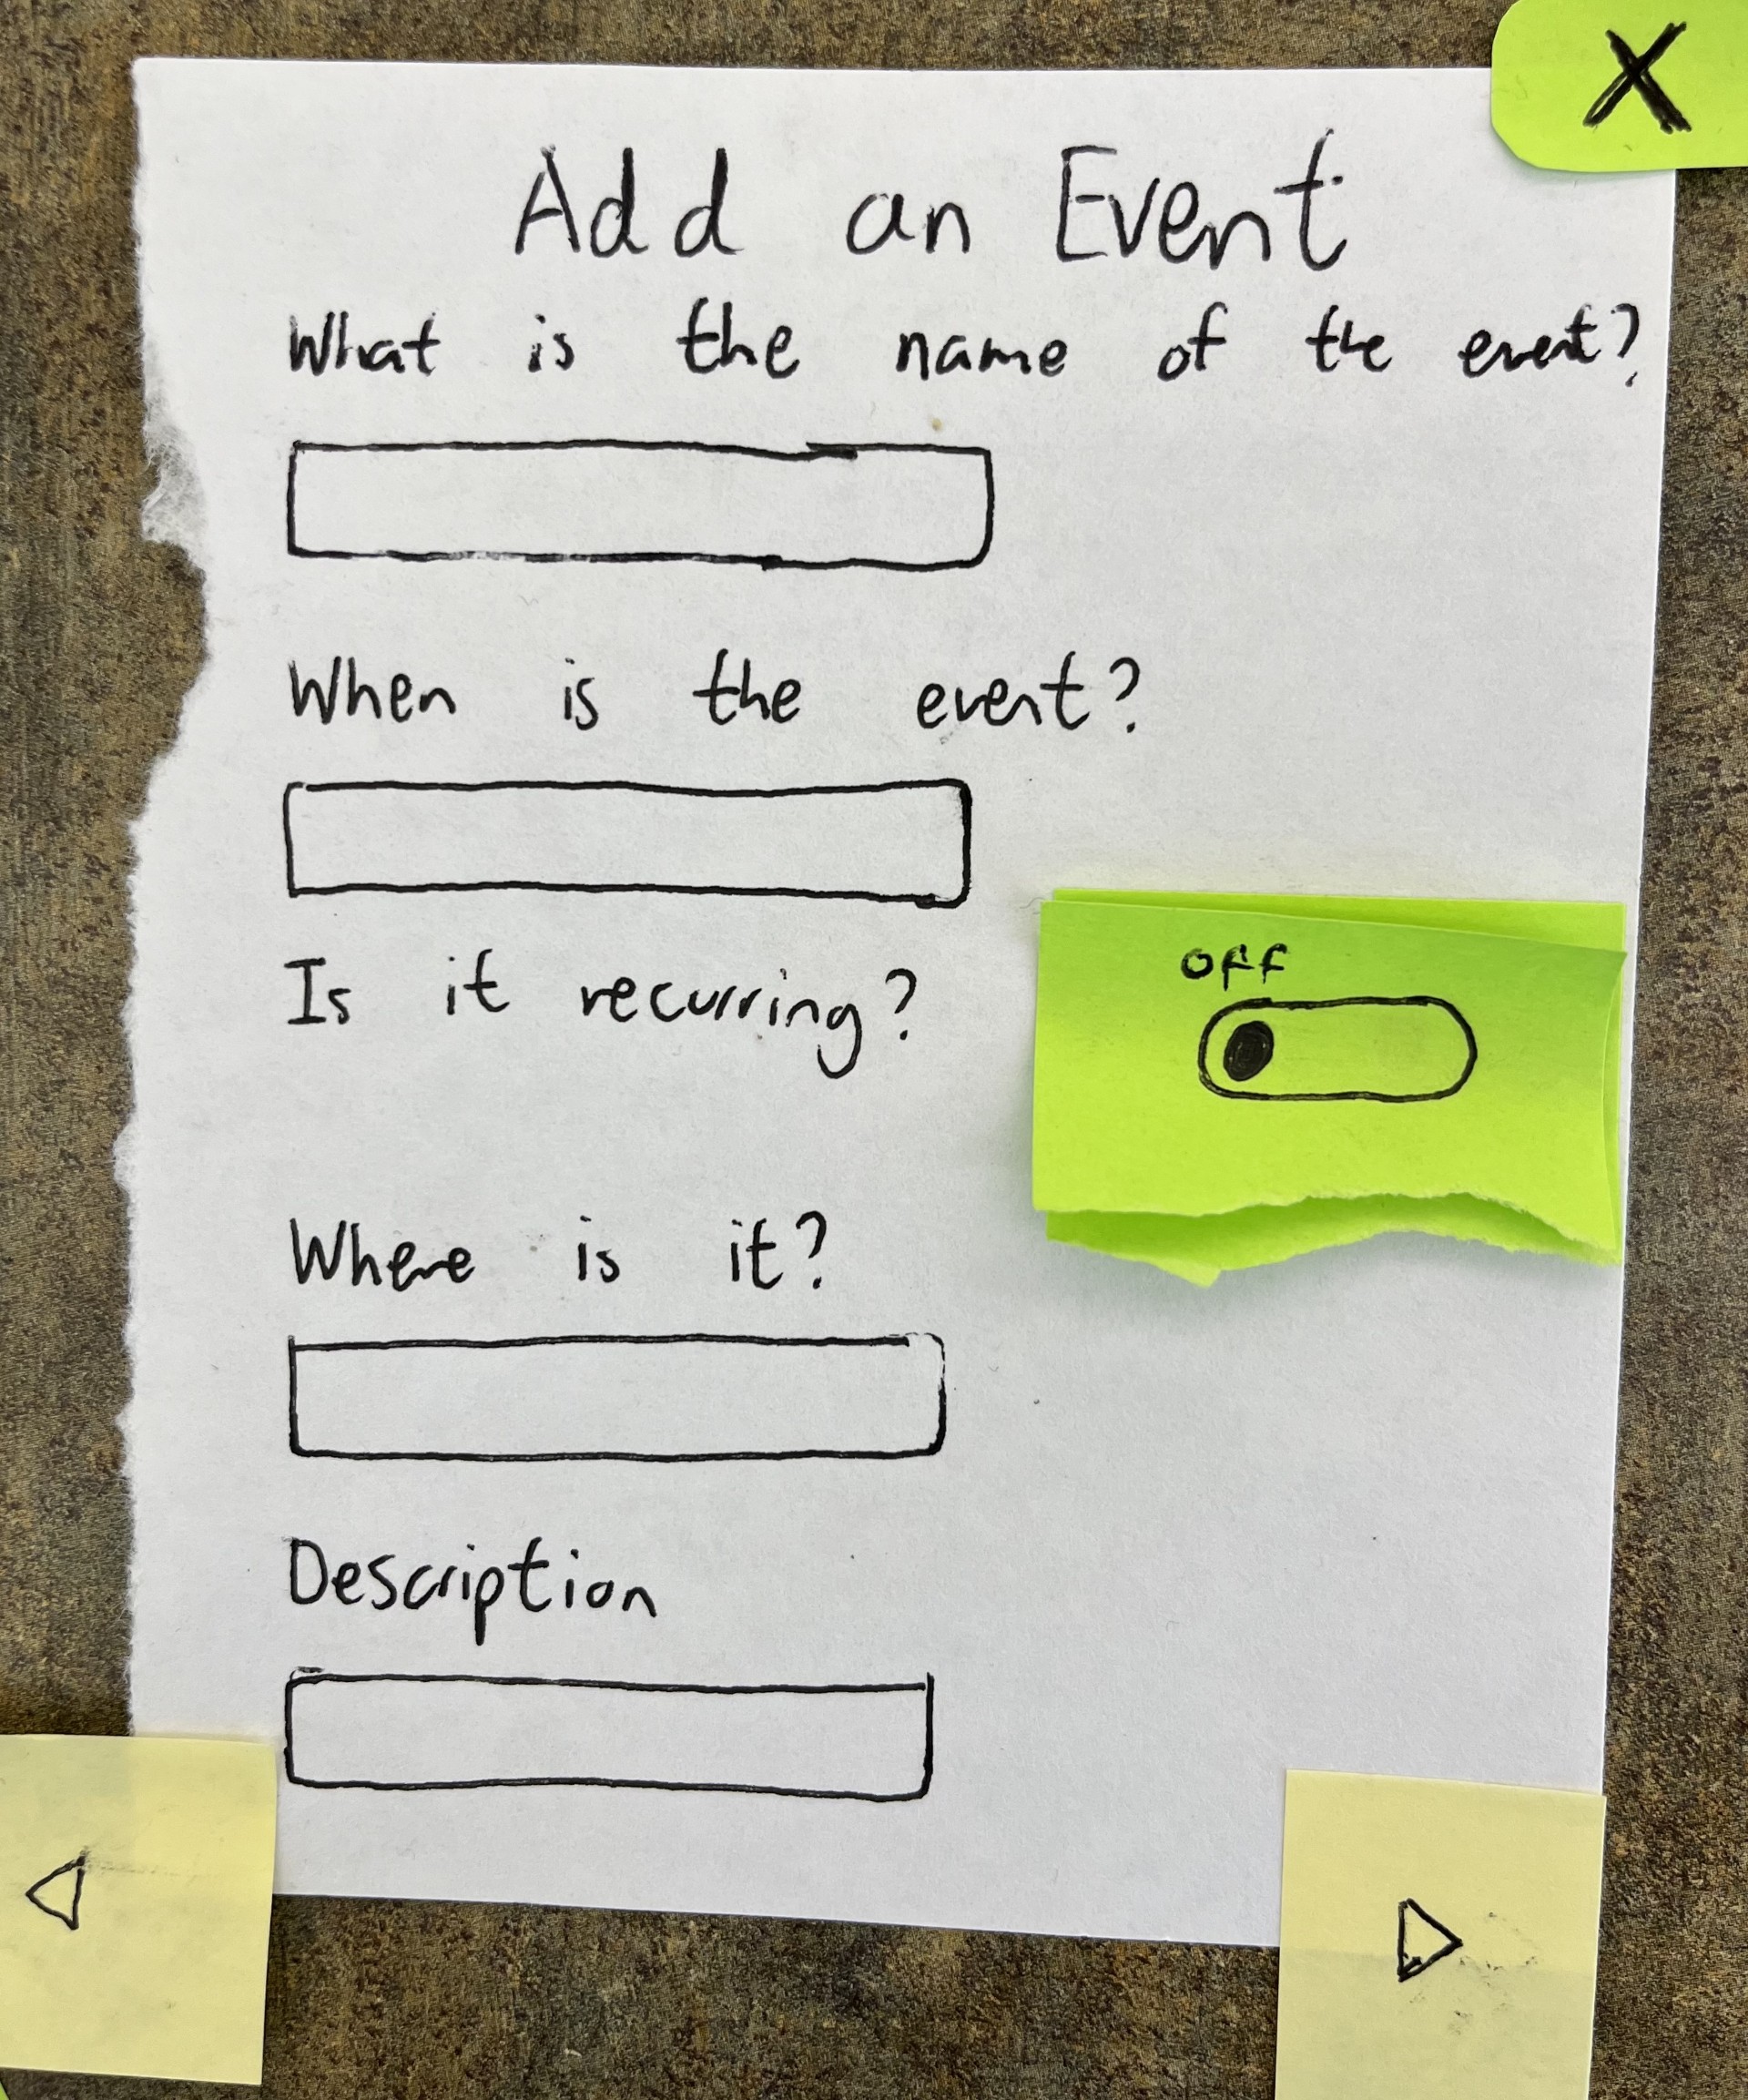 X
Add an Event
What is the name of the event?
When is the event?
Is it recurring?
off
Where is it?
Description